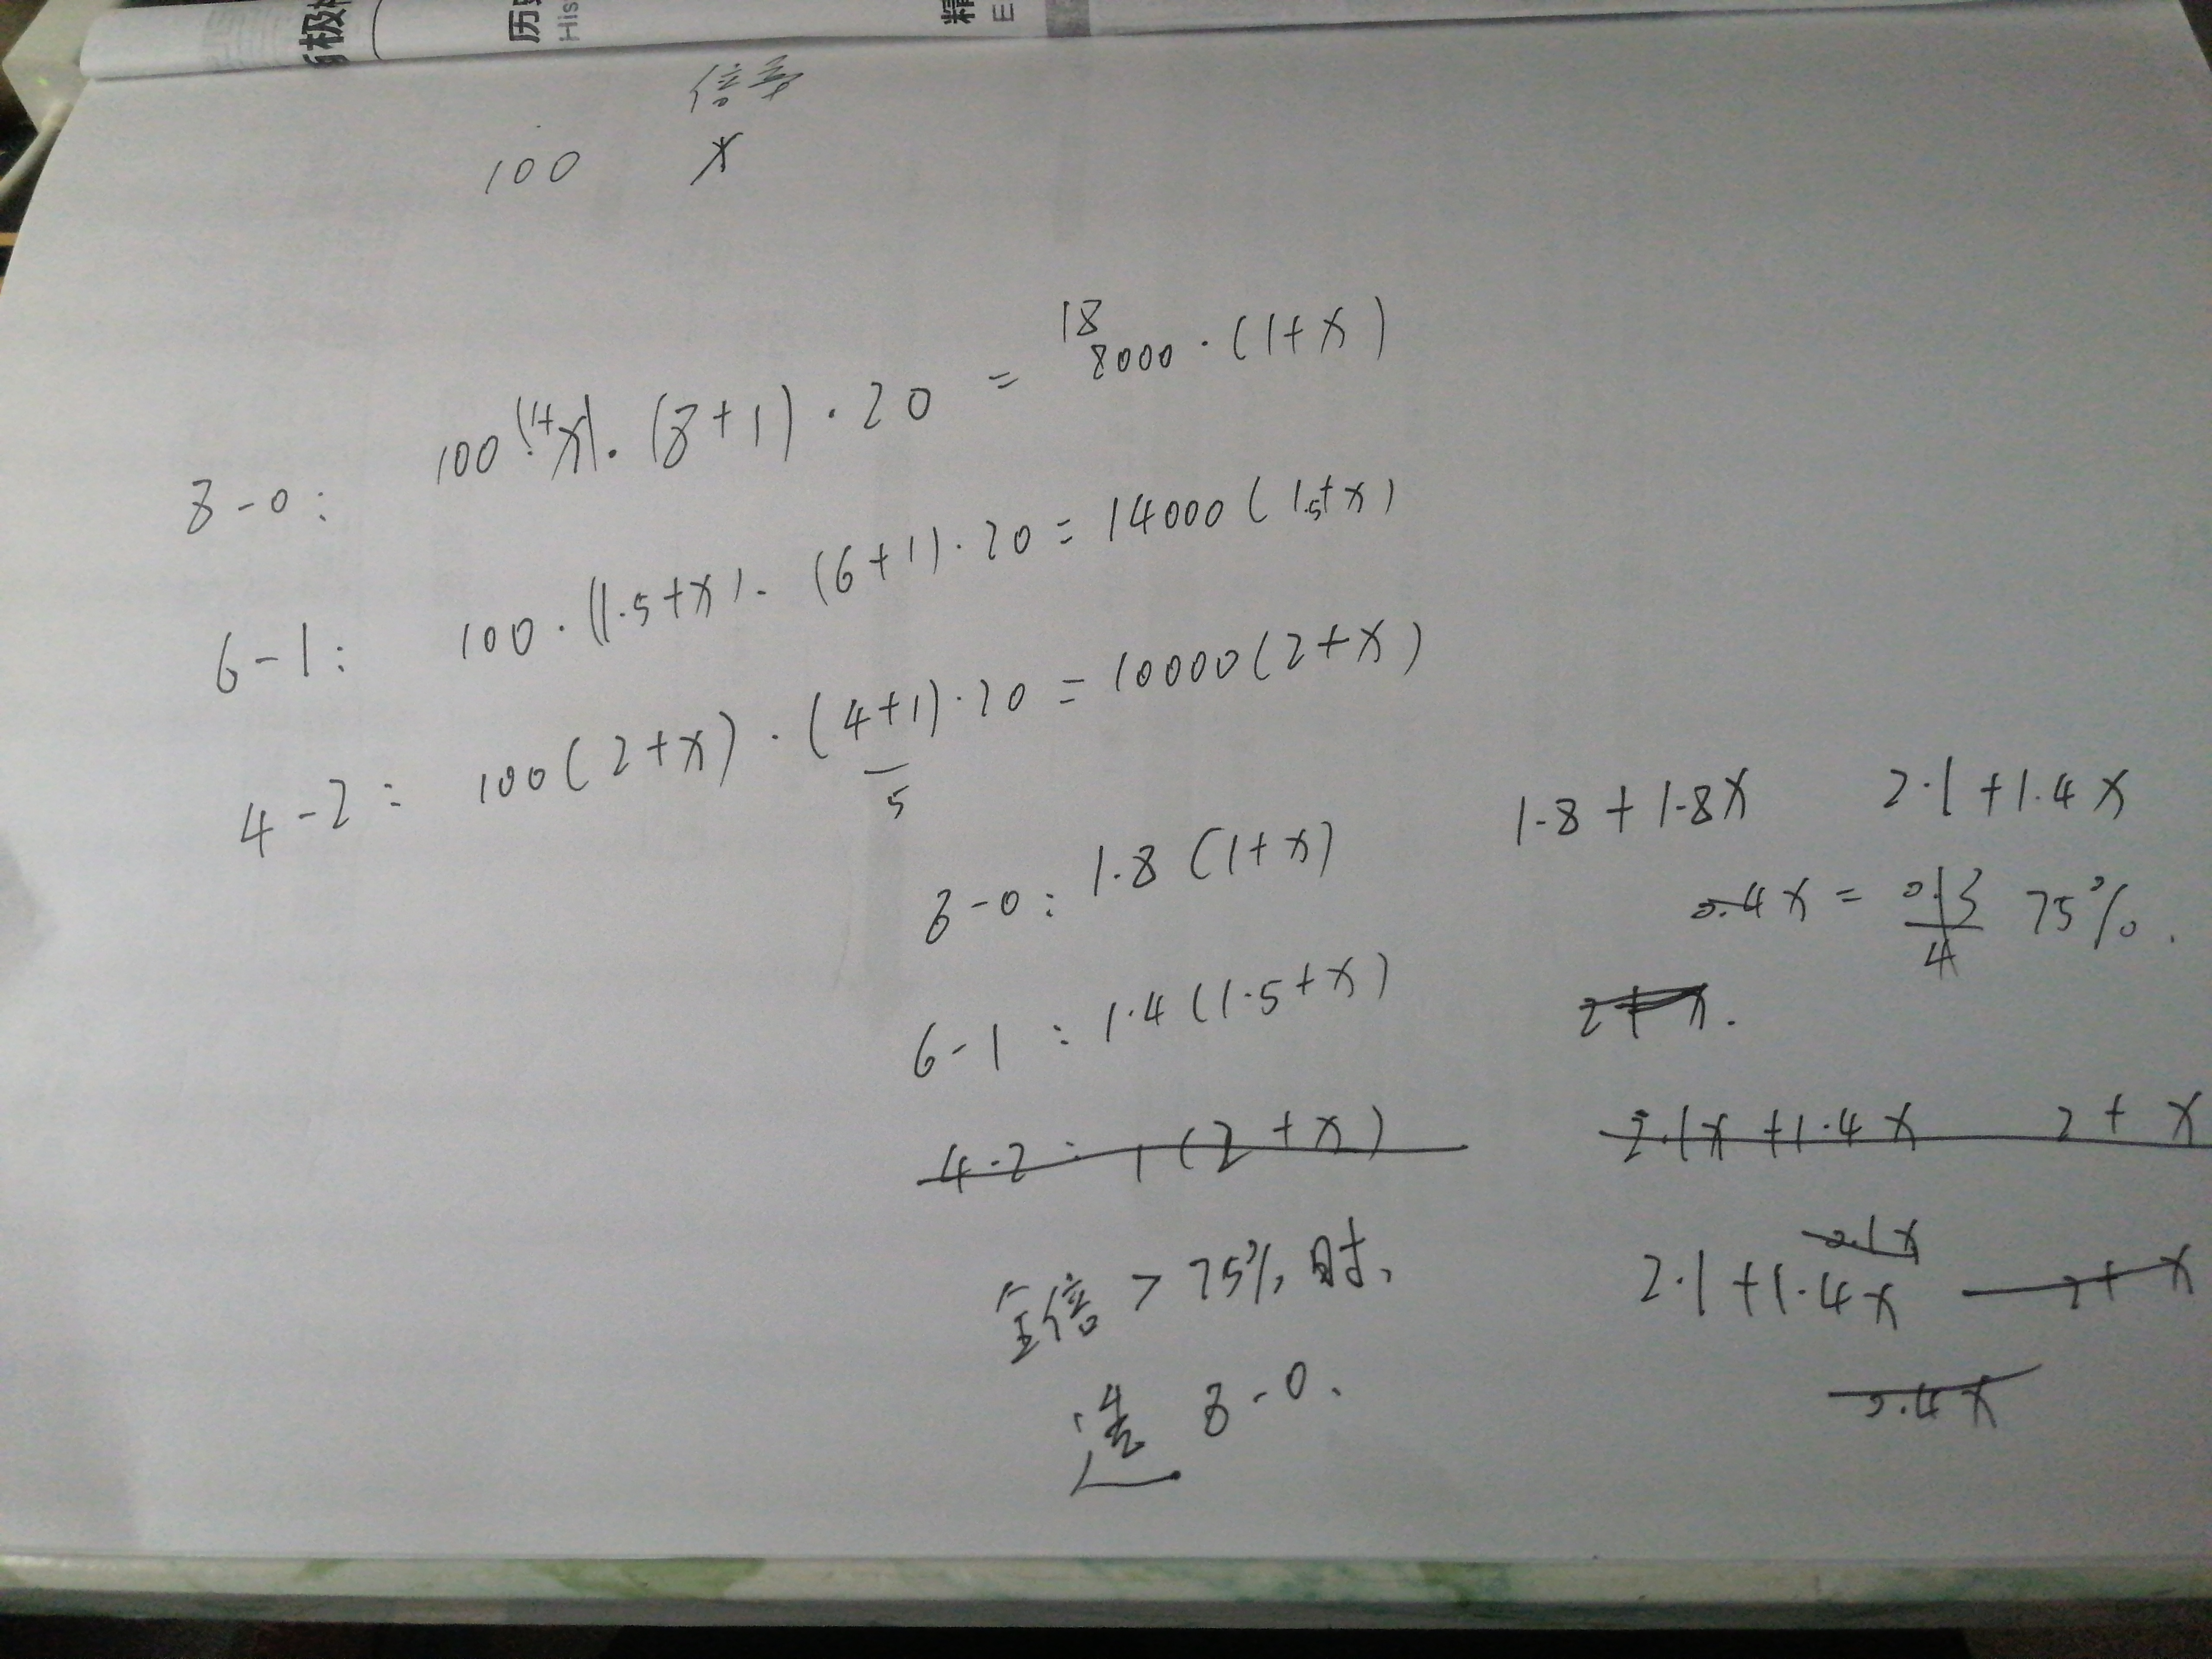 历史
His
精
E
倍率
100 x
8-0: 100(1+x)·(8+1)·20 = 18000·(1+x)
6-1: 100·(1.5+x)·(6+1)·20 = 14000(1.5+x)
4-2: 100(2+x)·(4+1)·20 = 10000(2+x)
5
1.8+1.8x 2.1+1.4x
8-0: 1.8(1+x)
0.4x = 0.3 75%.
4
6-1: 1.4(1.5+x)
2+x.
4-2: 1(2+x) 2.1x+1.4x 2+x
全倍>75%时,
2.1x
2.1+1.4x 2+x
选 8-0.
0.4x